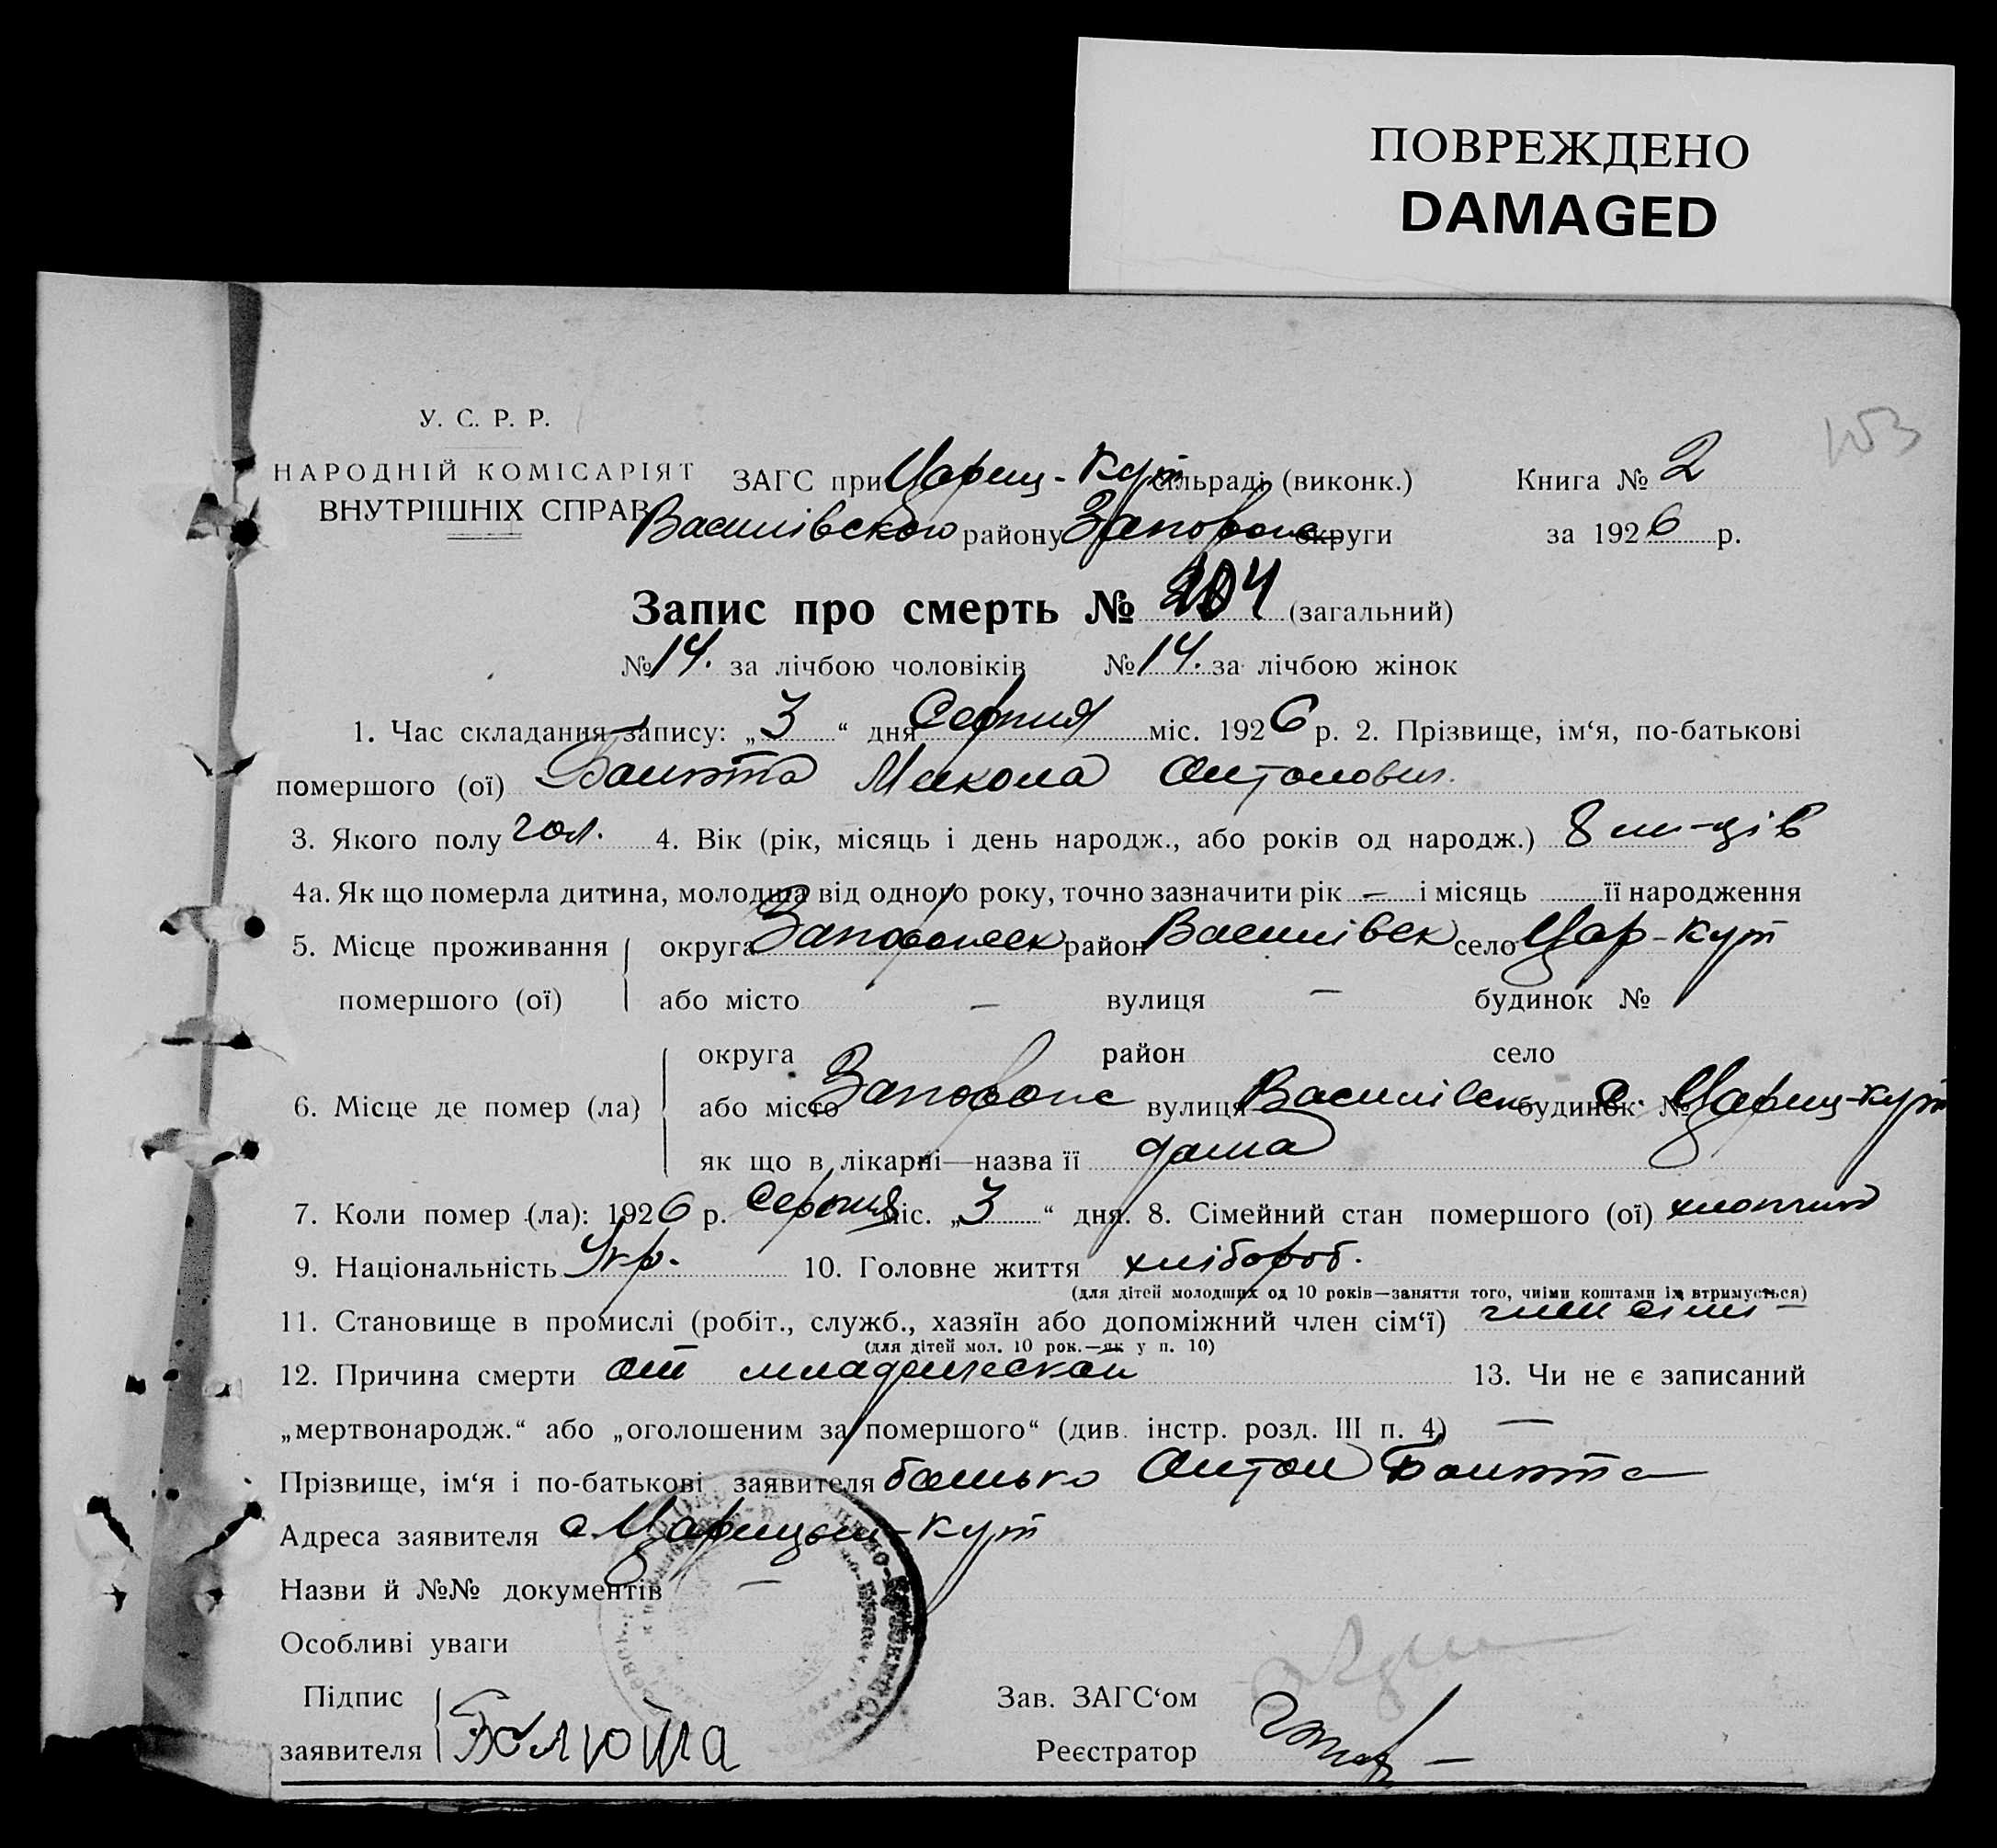 ПОВРЕЖДЕНО
DAMAGED
153
У. С. Р. Р.
НАРОДНІЙ КОМІСАРІЯТ
ВНУТРІШНІХ СПРАВ
ЗАГС при Цариц-Кут сільраді (виконк.) Книга № 2
Василівского району Запорож округи за 1926 р.
Запис про смерть № 204 (загальний)
№ 14. за лічбою чоловіків № 14. за лічбою жінок
1. Час складання запису: „3“ дня Серпня міс. 1926 р. 2. Прізвище, ім‘я, по-батькові
помершого (ої) Балюта Микола Антонович.
3. Якого полу чол. 4. Вік (рік, місяць і день народж., або років од народж.) 8 м-ців
4а. Як що померла дитина, молодша від одного року, точно зазначити рік — і місяць її народження
5. Місце проживання округа Запорожск район Василівск село Цар-Кут
помершого (ої) або місто — вулиця — будинок №
округа район село
6. Місце де помер (ла) або місто Запорож вулиця Василівск будинок № с. Цариц-Кут
як що в лікарні—назва її дома
7. Коли помер (ла): 1926 р. Серпня міс. „3“ дня. 8. Сімейний стан помершого (ої) хлопчик
9. Національність Укр. 10. Головне життя хлібороб.
(для дітей молодших од 10 років—заняття того, чиїми коштами їх втримується)
11. Становище в промислі (робіт., служб., хазяїн або допоміжний член сім‘ї) член сімї —
(для дітей мол. 10 рок.—як у п. 10)
12. Причина смерти от младенческой 13. Чи не є записаний
„мертвонародж.“ або „оголошеним за помершого“ (див. інстр. розд. III п. 4) —
Прізвище, ім‘я і по-батькові заявителя батько Антон Балюта
Адреса заявителя с. Царицын-Кут
Назви й №№ документів —
Особливі уваги
Підпис Зав. ЗАГС‘ом
заявителя Балюта Реєстратор